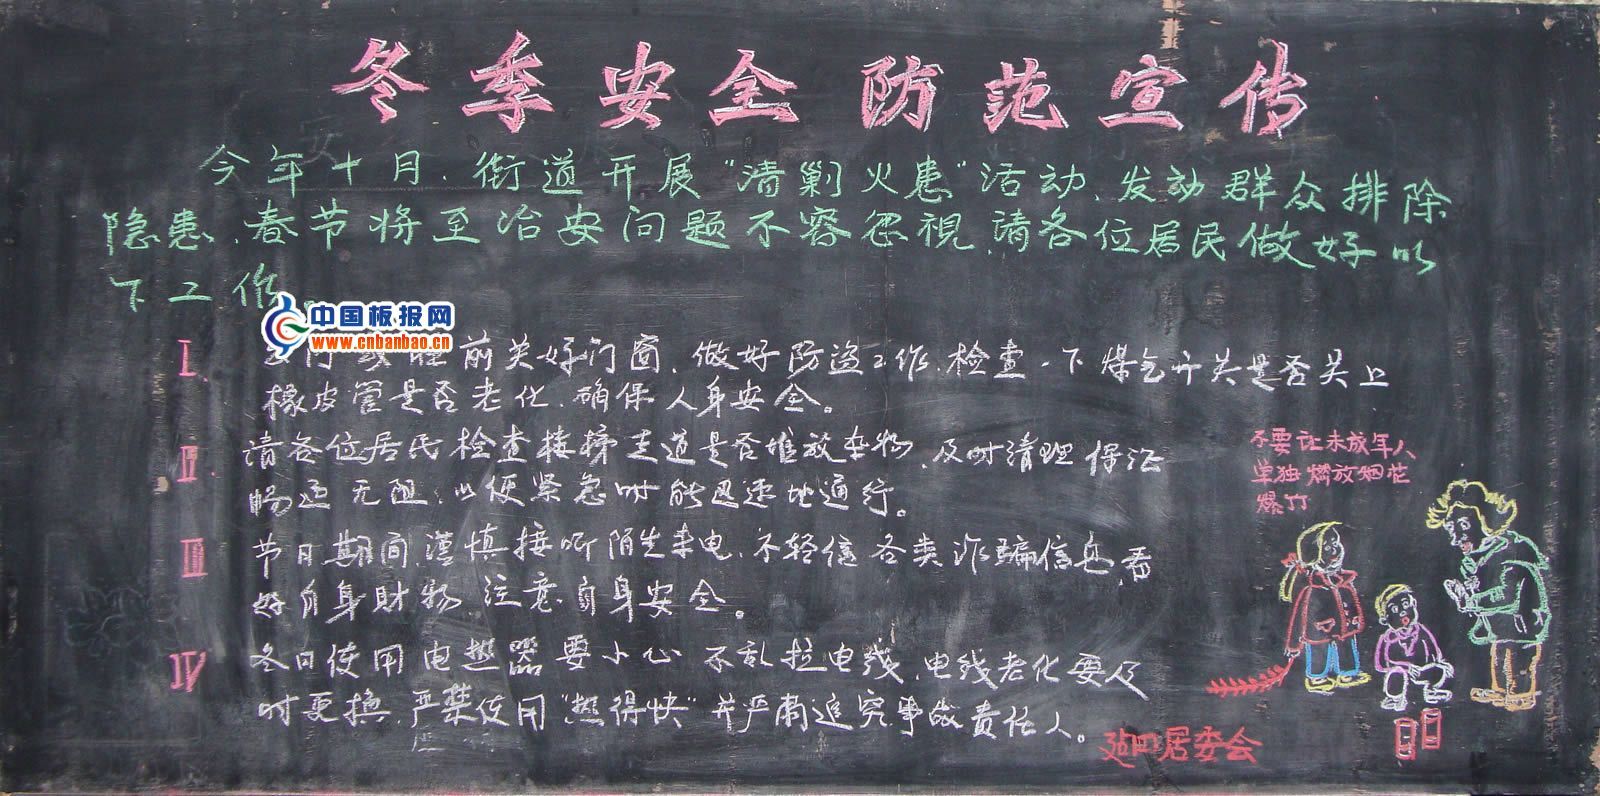 冬季安全防范宣传
今年十月、街道开展"清剿火患"活动、发动群众排除
隐患、春节将至治安问题不容忽視、请各位居民做好以
下工作
中国板报网
www.cnbanbao.cn
I. 前关好门窗、做好防盗工作、检查一下煤气开关是否关上
橡皮管是否老化、确保人身安全。
II. 请各位居民检查楼梯走道是否堆放杂物、及时清理保证
畅通无阻、以便紧急时能迅速地通行。
III 节日期间、谨慎接听陌生来电、不轻信各类诈骗信息、看
好自身財物、注意自身安全。
IV 冬日使用电热器要小心 不乱拉电线、电线老化要及
时更换、严禁使用"热得快"并严肃追究事故责任人。
不要让未成年人
单独燃放烟花
爆竹
居委会